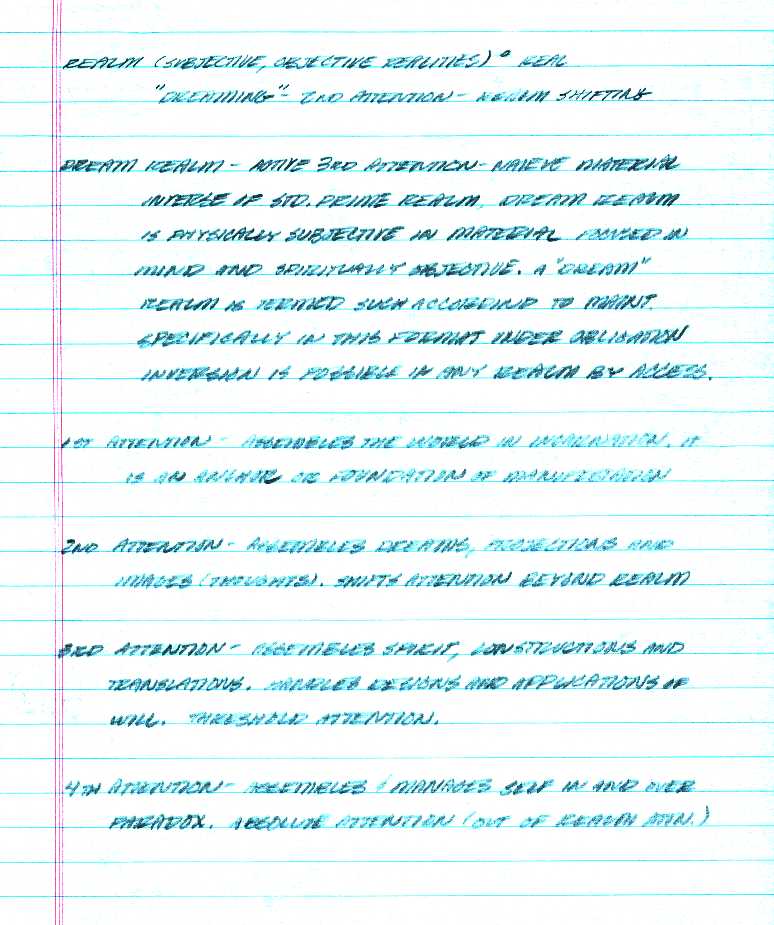 REALM (SUBJECTIVE, OBJECTIVE REALITIES) ° REAL
"DREAMING" - 2ND ATTENTION - REALM SHIFTING
DREAM REALM - ACTIVE 3RD ATTENTION - NAIEVE MATERIAL
INVERSE OF STD. PRIME REALM. DREAM REALM
IS PHYSICALLY SUBJECTIVE IN MATERIAL FOCUSED IN
MIND AND SPIRITUALLY OBJECTIVE. A "DREAM"
REALM IS TERMED SUCH ACCORDING TO MAINT.
SPECIFICALLY IN THIS FORMAT UNDER OBLIGATION
INVERSION IS POSSIBLE IN ANY REALM BY ACCESS.
1ST ATTENTION - ASSEMBLES THE WORLD IN INCARNATION. IT
IS AN ANCHOR OR FOUNDATION OF MANIFESTATION
2ND ATTENTION - ASSEMBLES DREAMS, PROJECTIONS AND
IMAGES (THOUGHTS). SHIFTS ATTENTION BEYOND REALM
3RD ATTENTION - ASSEMBLES SPIRIT, CONSTRUCTIONS AND
TRANSLATIONS. HANDLES DESIGNS AND APPLICATIONS OF
WILL. THRESHOLD ATTENTION.
4TH ATTENTION - ASSEMBLES & MANAGES SELF IN AND OVER
PARADOX. ABSOLUTE ATTENTION (OUT OF REALM ATTN.)